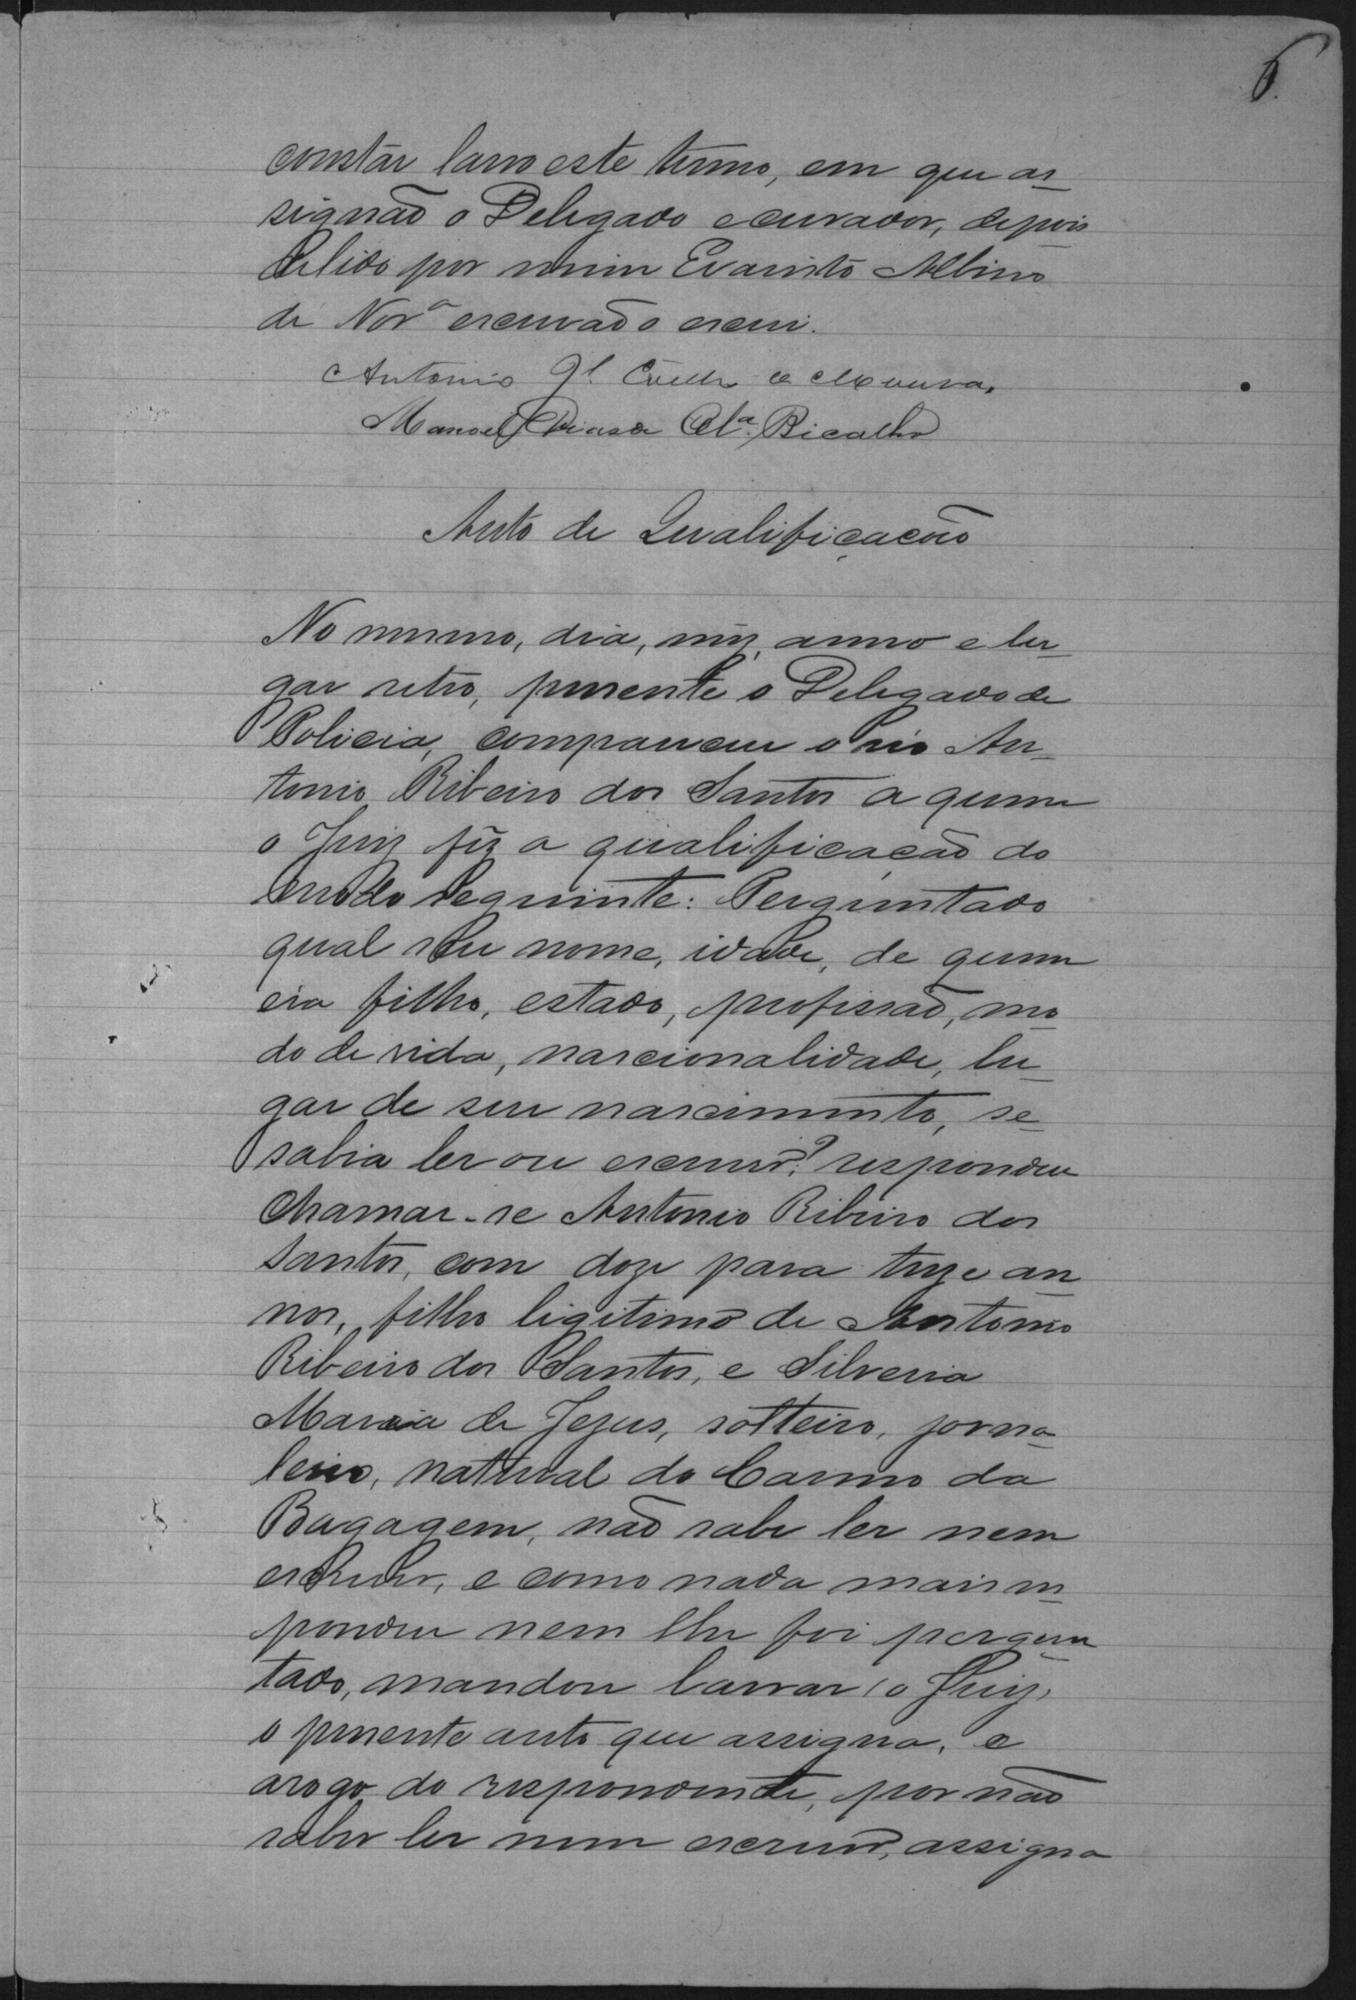 6.
constar lavro este termo, em que as-
signão o Delegado e curador, depois
de lido por mim Evaristo Albino
de Nor.ª escrivão o escrevi.
Antonio Gl. Coelho de Moura.
Manoel Dias de Olª. Bicalho
Auto de Qualificação
No mesmo, dia, mez, anno e lu-
gar retro, presente o Delegado de
Policia, compareceu o réo An-
tonio Ribeiro dos Santos a quem
o Juiz fez a qualificação do
modo seguinte: Perguntado
qual seu nome, idade, de quem
era filho, estado, profissão, mo-
do de vida, nascionalidade, lu-
gar de seu nascimento, se
sabia ler ou escrever? respondeu
chamar-se Antonio Ribeiro dos
Santos, com doze para treze an-
nos, filho legitimo de Antonio
Ribeiro dos Santos, e Silveria
Maria de Jezus, solteiro, jorna-
leiro, natural do Carmo da
Bagagem, não sabe ler nem
escrever, e como nada mais res-
pondeu nem lhe foi pergun-
tado, mandou lavrar o Juiz,
o presente auto que assigna, e
arogo do respondente, por não
saber ler nem escrever, assigna